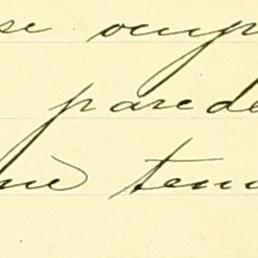 se ocup
parede
nè ten